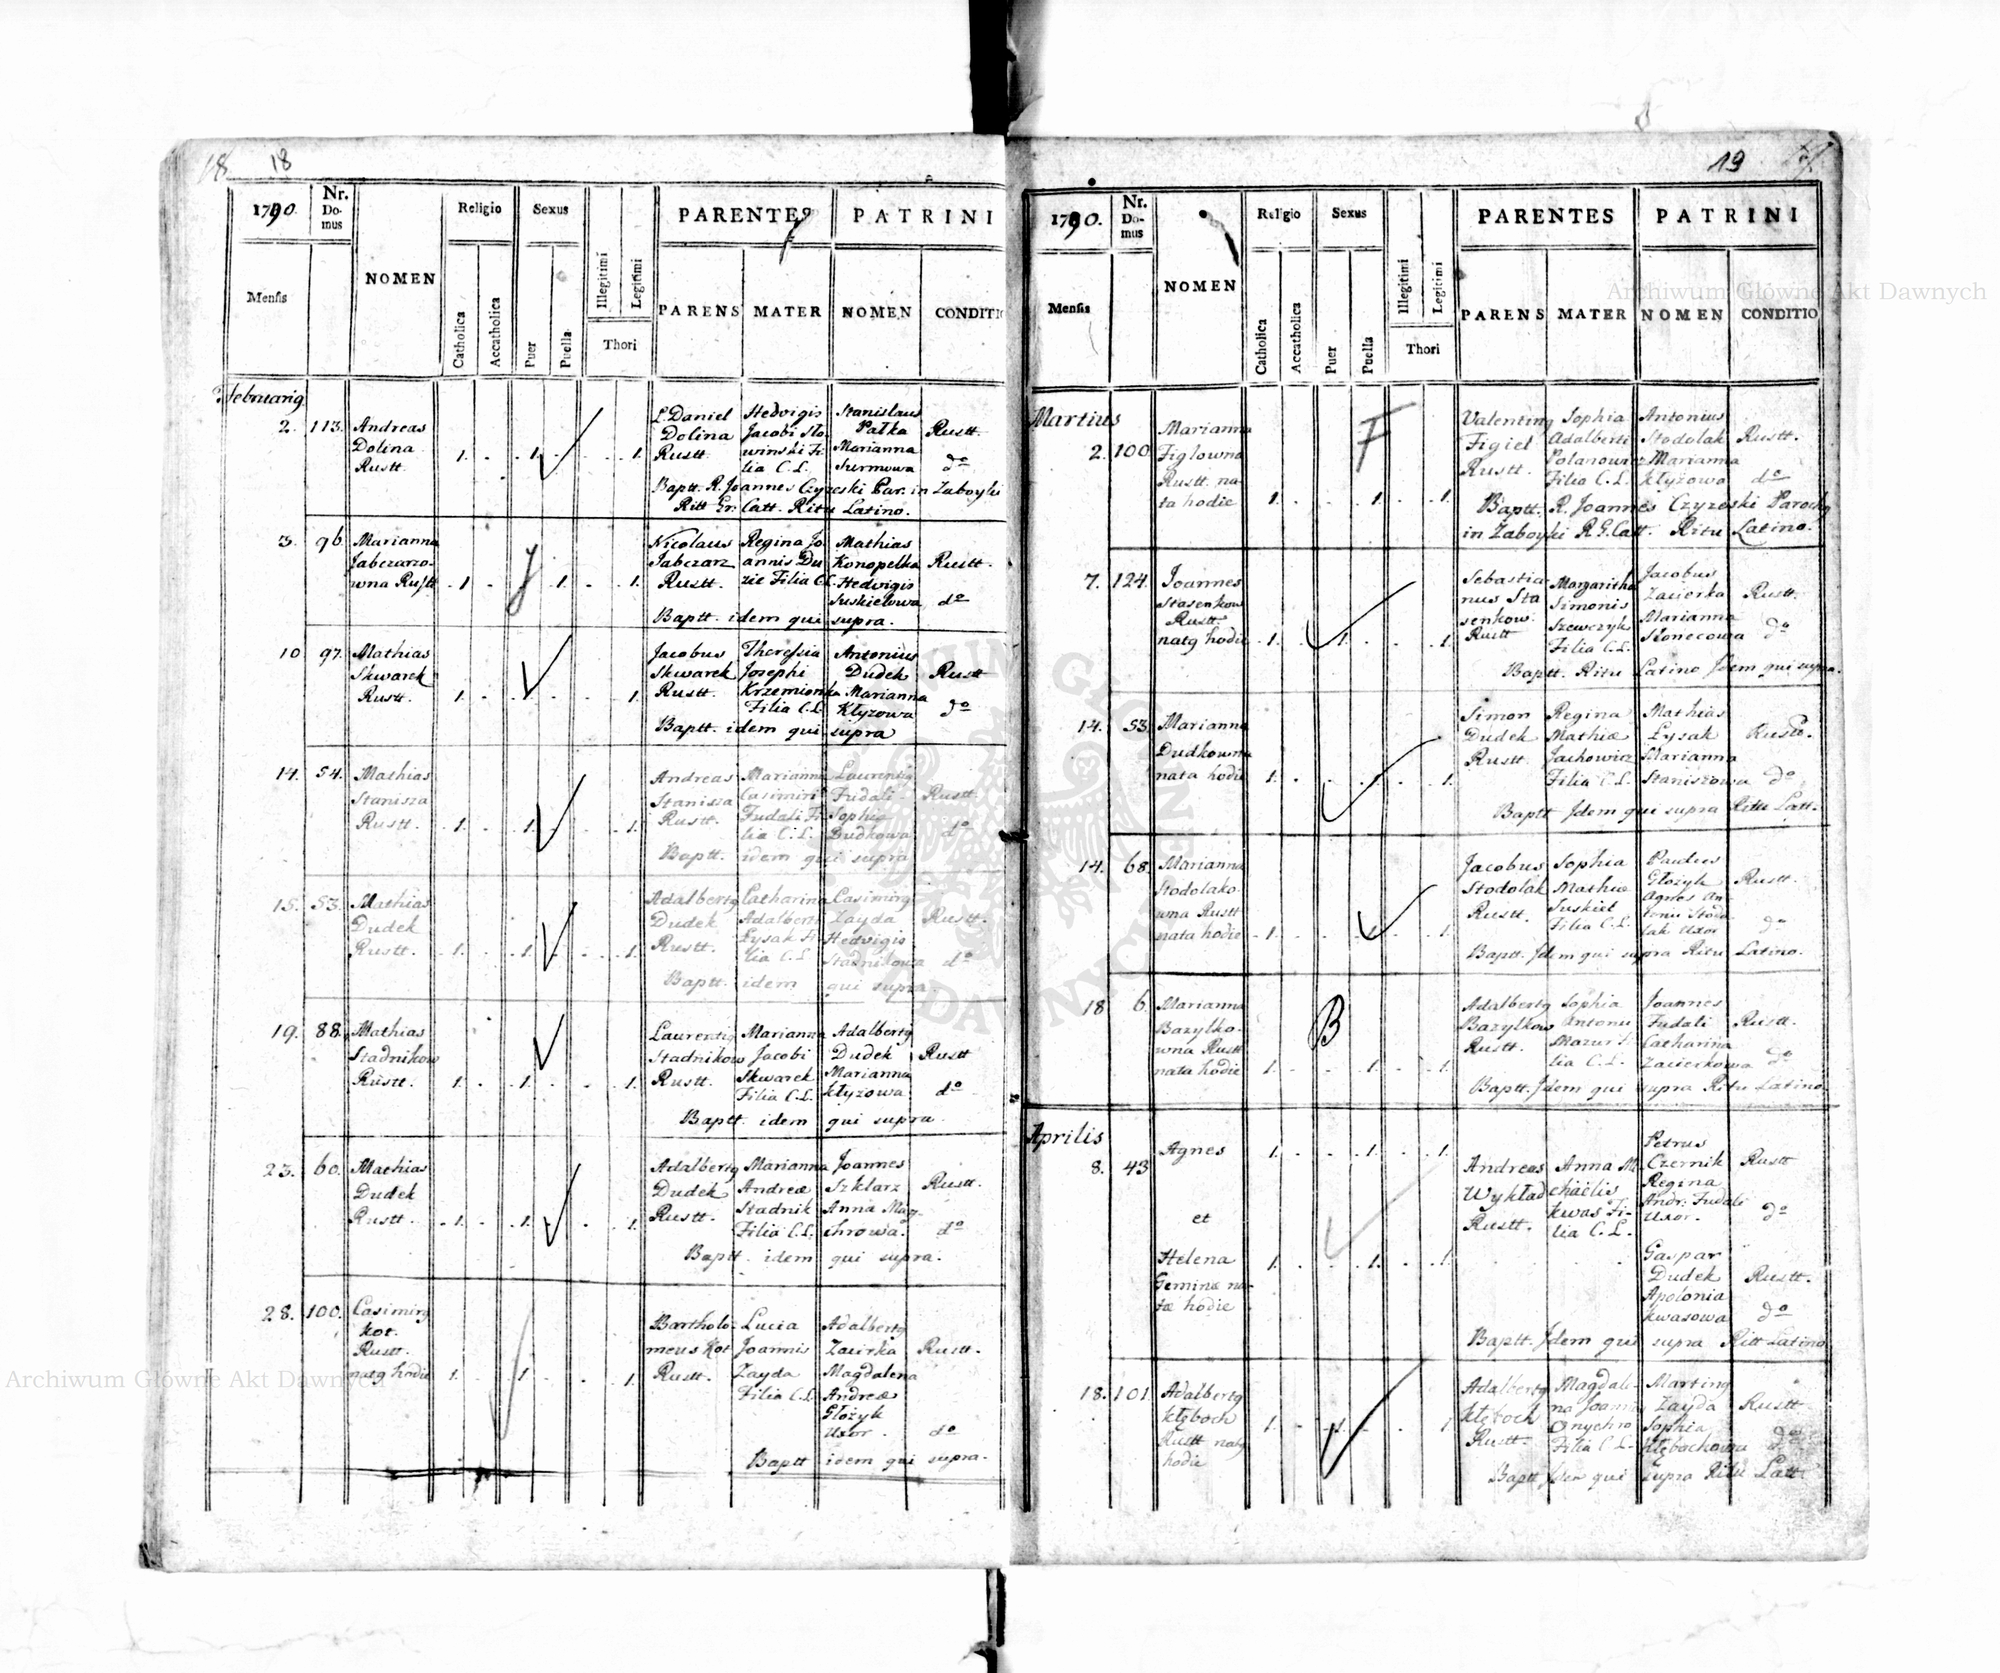 18 18
1790. Nr. Domus NOMEN Religio Sexus PARENTES PATRINI
Mensis Catholica Accatholica Puer Puella Illegitimi Legitimi Thori PARENS MATER NOMEN CONDITI
Februarig
2. 113. Andreas 1. 1. 1. Daniel Hedvigis Stanislaus
Dolina Dolina Jacobi Sło- Pałka Rustt.
Rustt. Rustt. winski Fi- Marianna
lia C.L. Surmowa do
Baptt. R. Joannes Czyrzeski Par. in Zaboyki
Ritt Gr. Catt. Ritu Latino.
3. 96 Marianna 1. 1. 1. Nicolaus Regina Jo- Mathias
Jabczarzo- Jabczarz annis Du Konopelka Rustt.
wna Rustt Rustt. zie Filia C.L. Hedvigis
Suskielowa do
Baptt. idem qui supra.
10 97. Mathias 1. 1. Jacobus Theressia Antonius
Skwarek Skwarek Josephi Dudek Rustt
Rustt. Rustt. Krzemionka Marianna
Filia C.L. Kłyzowa do
Baptt. idem qui supra
14. 54. Mathias 1. 1. 1. Andreas Marianna Laurentig
Stanisza Stanisza Casimiri Fudali Rustt.
Rustt. Rustt. Fudali Fi- Sophia
lia C.L. Dudkowa do
Baptt. idem qui supra
15. 53. Mathias 1. 1. 1. Adalbertg Catharina Casimirg
Dudek Dudek Adalberti Zayda Rustt.
Rustt. Rustt. Łysak Fi- Hedvigis
lia C.L. Stadnikowa do
Baptt. idem qui supra.
19. 88. Mathias 1. 1. 1. Laurentig Marianna Adalbertg
Stadnikow Stadnikow Jacobi Dudek Rustt
Rustt. Rustt. Skwarek Marianna
Filia C.L. Kłyzowa do
Baptt. idem qui supra.
23. 60. Mathias 1. 1. 1. Adalbertg Marianna Joannes
Dudek Dudek Andreæ Szklarz Rustt.
Rustt. Rustt. Stadnik Anna Mag-
Filia C.L. chrowa. do
Baptt. idem qui supra.
28. 100. Casimirg 1. 1. 1. Bartholo- Lucia Adalbertg
Kot. meus Kot Joannis Zacirka Rustt.
Rustt. Rustt. Zayda Magdalena
natg hodie Filia C.L. Andreæ
Głozyk
Uxor. do
Baptt idem qui supra.
19
1790. Nr. Domus NOMEN Religio Sexus PARENTES PATRINI
Mensis Catholica Accatholica Puer Puella Illegitimi Legitimi Thori PARENS MATER NOMEN CONDITIO
Martius
2. 100 Marianna 1. 1. 1. F Valenting Sophia Antonius
Figlowna Figiel Adalberti Stodolak Rustt.
Rustt. na- Rustt. Polanowicz Marianna
ta hodie Filia C.L. Kłyzowa do
Baptt. R. Joannes Czyrzeski Parochg
in Zaboyki R.G. Catt. Ritu Latino.
7. 124. Joannes 1. 1. 1. Sebastia- Margaritha Jacobus
Stasenkow nus Sta Simonis Zacierka Rustt.
Rustt. senkow. Szewczyk Marianna
natg hodie Rustt Filia C.L. Słonecowa do
Baptt. Ritu Latino Jdem qui supra.
14. 53. Marianna 1. 1. 1. Simon Regina Mathias
Dudkowna Dudek Mathiæ Łysak Rustt.
nata hodie Rustt. Jachowicz Marianna
Filia C.L. Staniszowa do
Baptt Jdem qui supra Ritu Latt.
14. 68. Marianna 1. 1. Jacobus Sophia
Stodolako- Stodolak Mathiæ Głozyk Rustt.
wna Rustt Rustt. Suskiel Agnes An-
nata hodie Filia C.L. tonii Stodo
lak Uxor do
Baptt. Jdem qui supra Ritu Latino.
18 6. Marianna 1. 1. 1. B Adalbertg Sophia Joannes
Bazylko- Bazylkow Antonii Fudali Rustt.
wna Rustt Rustt. Mazur Fi- Catharina
nata hodie lia C.L. Zacierkowa do
Baptt. Jdem qui supra Ritu Latino.
Aprilis
8. 43 Agnes 1. 1. 1. Petrus
Andreas Anna Mi- Czernik Rustt
Wykład chaelis Regina
et Rustt. Kwas Fi- Andr: Fudali
lia C.L. Uxor. do
Helena 1. 1. 1. Gaspar
Geminæ na- Dudek Rustt.
tæ hodie Apolonia
Kwasowa do
Baptt. Jdem qui supra Ritt Latino
18. 101 Adalbertg 1. 1. 1 Adalbertg Magdale- Marting
Kłęboch Kłęboch na Joannis Zayda Rustt
Rustt natg Rustt. Onychro Sophia
hodie Filia C.L. Kłębochowa do
Baptt Jdem qui supra Ritu Latt
Archiwum Główne Akt Dawnych
Archiwum Główne Akt Dawnych